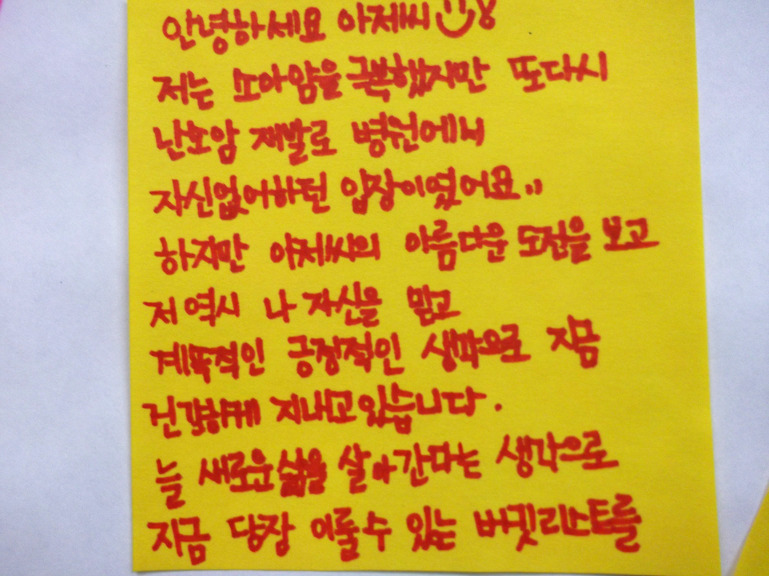 안녕하세요 아저씨
저는 소아암을 극복했지만 또다시
난소암 재발로 병원에서
자신없어하던 입장이였어요..
하지만 아저씨의 아름다운 도전을 보고
저 역시 나 자신을 믿고
계획적인 긍정적인 생각으로 지금
건강하게 지내고있습니다.
늘 새로운 삶을 살아간다는 생각으로
지금 당장 이룰수 있는 버킷리스트를